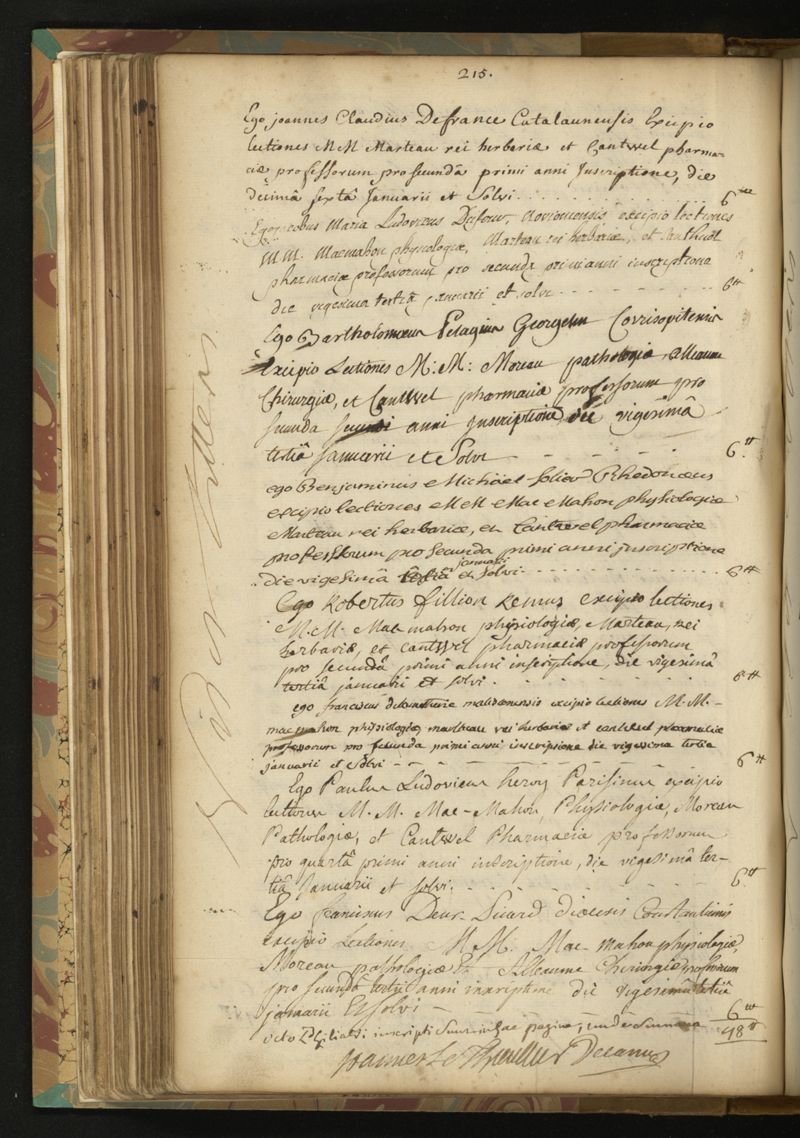 215.
Ego joannes Claudius Defrance Catalaunensis Excipio
lectiones MM Marteau rei herbariæ et Cantwel pharma-
ciæ professorum pro secundâ primi anni Inscriptione, die
decimâ sextâ Januarii et Solvi . . . . . . . . . . 6tt
Ego Maria Ludovicus Noviomensis excipio lectiones
MM. Macmahon physiologiæ, Marteau rei herbariæ, et
pharmaciæ professorum pro secunda primi anni inscriptione
die vigesima tertiâ januarii et solvi . . . . . . . 6tt
Ego Bartholomæus Pelagius Georgelin Corisopitensis
Excipio Lectiones M: M: Moreau pathologiæ, Alleaume
Chirurgiæ, et Cantwel pharmaciæ professorum pro
secunda secundi anni Inscriptione die vigesimâ
tertiâ januarii et Solvi - - - - 6tt
ego Benjaminus Michael Rhedonæus
excipio lectiones MM Mac Mahon physiologiæ
Marteau rei herbariæ, et Cantwel pharmaciæ
professorum pro secunda primi anni inscriptione
die vigesimâ tertiâ januarii et solvi . . . . . . . . . 6tt
Ego Robertus fillion excipio lectiones
M. M. Mac mahon physiologiæ, Marteau, rei
herbariæ, et cantwel pharmaciæ professorum
pro secundâ primi anni inscriptione, die vigesimâ
tertiâ januarii et solvi . . . . . . . 6tt
ego franciscus excipio lectiones M. M. -
mac mahon physiologiæ marteau rei herbariæ et cantwel pharmaciæ
professorum pro secunda primi anni inscriptione die vigesima tertia
januarii et solvi - - - - - - 6tt
Ego Paulus Ludovicus hervy Parisinus excipio
lectiones M. M. Mac-Mahon, Physiologiæ, Moreau
Pathologiæ, et Cantwel Pharmaciæ professorum
pro quartâ primi anni inscriptione, die vigesimâ ter-
tiâ Januarii et solvi. - - - - - 6tt
Ego franciscus Sicard diœcesis Constantiensis
excipio Lectiones M. M. Mac-mahon physiologiæ,
Moreau pathologiæ & Alleaume Chirurgiæ professorum
pro secundâ tertii anni inscriptione die vigesimâ tertiâ
januarii Et solvi - - - - 6tt
octo inscripti sunt in hac pagina, unde summa 48tt
Joannes Le Thuillier Decanus